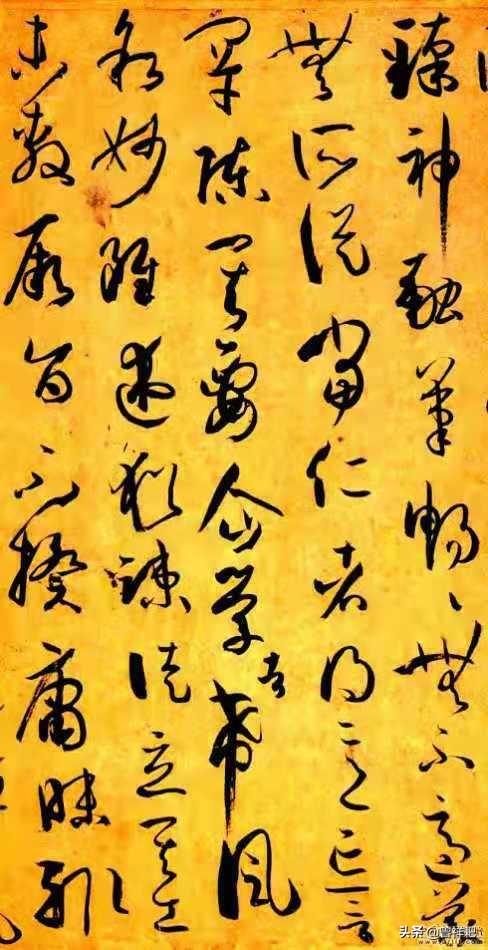 臻神融筆暢〻無不適蒙
無所從當仁者得意忘言
罕陳其要企學者希風
敘妙雖述猶疎徒立其工
未敷厥旨不揆庸昧輒
头条